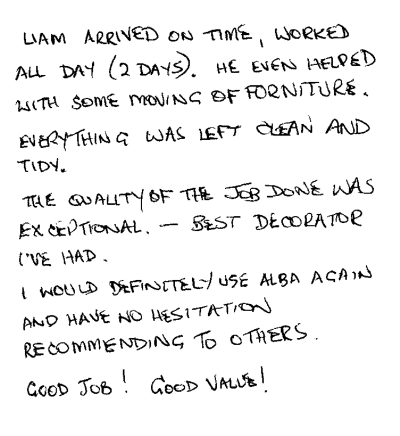 LIAM ARRIVED ON TIME, WORKED
ALL DAY (2 DAYS). HE EVEN HELPED
WITH SOME MOVING OF FORNITURE.
EVERYTHING WAS LEFT CLEAN AND
TIDY.
THE QUALITY OF THE JOB DONE WAS
EXCEPTIONAL. – BEST DECORATOR
I'VE HAD.
I WOULD DEFINITELY USE ALBA AGAIN
AND HAVE NO HESITATION
RECOMMENDING TO OTHERS.
GOOD JOB! GOOD VALUE!